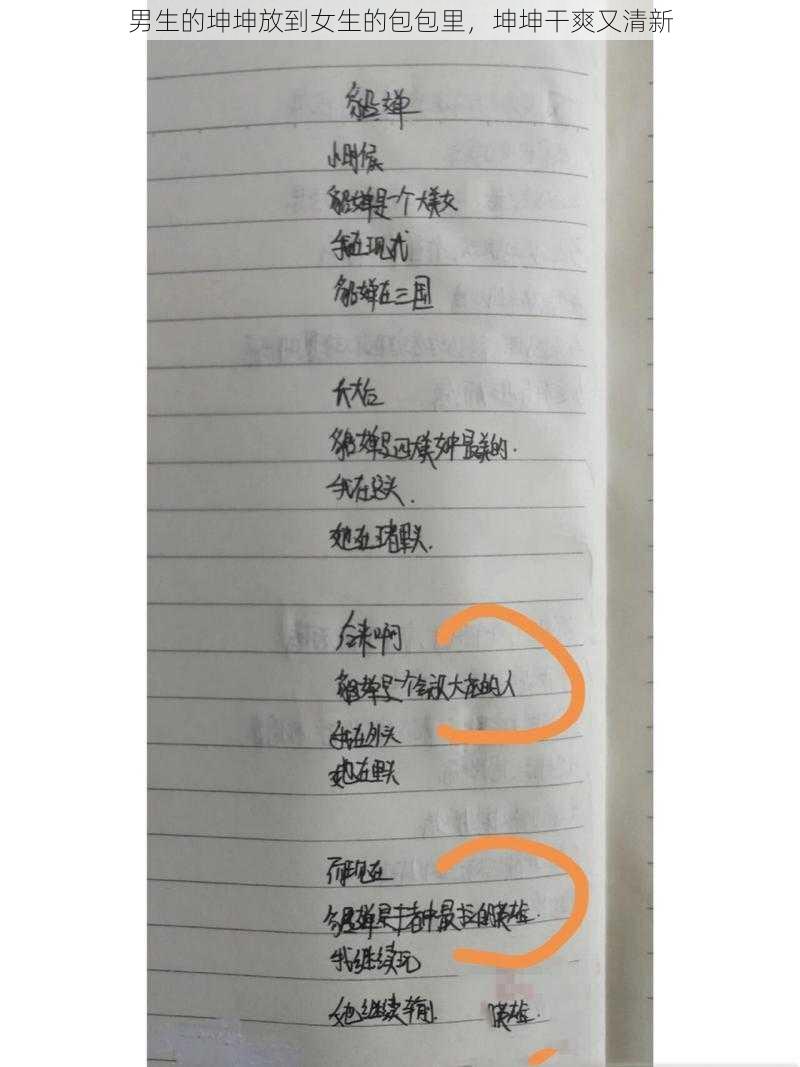 男生的坤坤放到女生的包包里，坤坤干爽又清新
貂蝉
小时候
貂蝉是一个大美女
我在现代
貂蝉在三国
长大后
貂蝉是四大美女中最美的.
我在这头.
她在里头.
后来啊
貂蝉是一个会放大招的人
我在外头
她在里头
而现在
貂蝉是王者中最拉的英雄.
我继续玩
她继续
英雄.